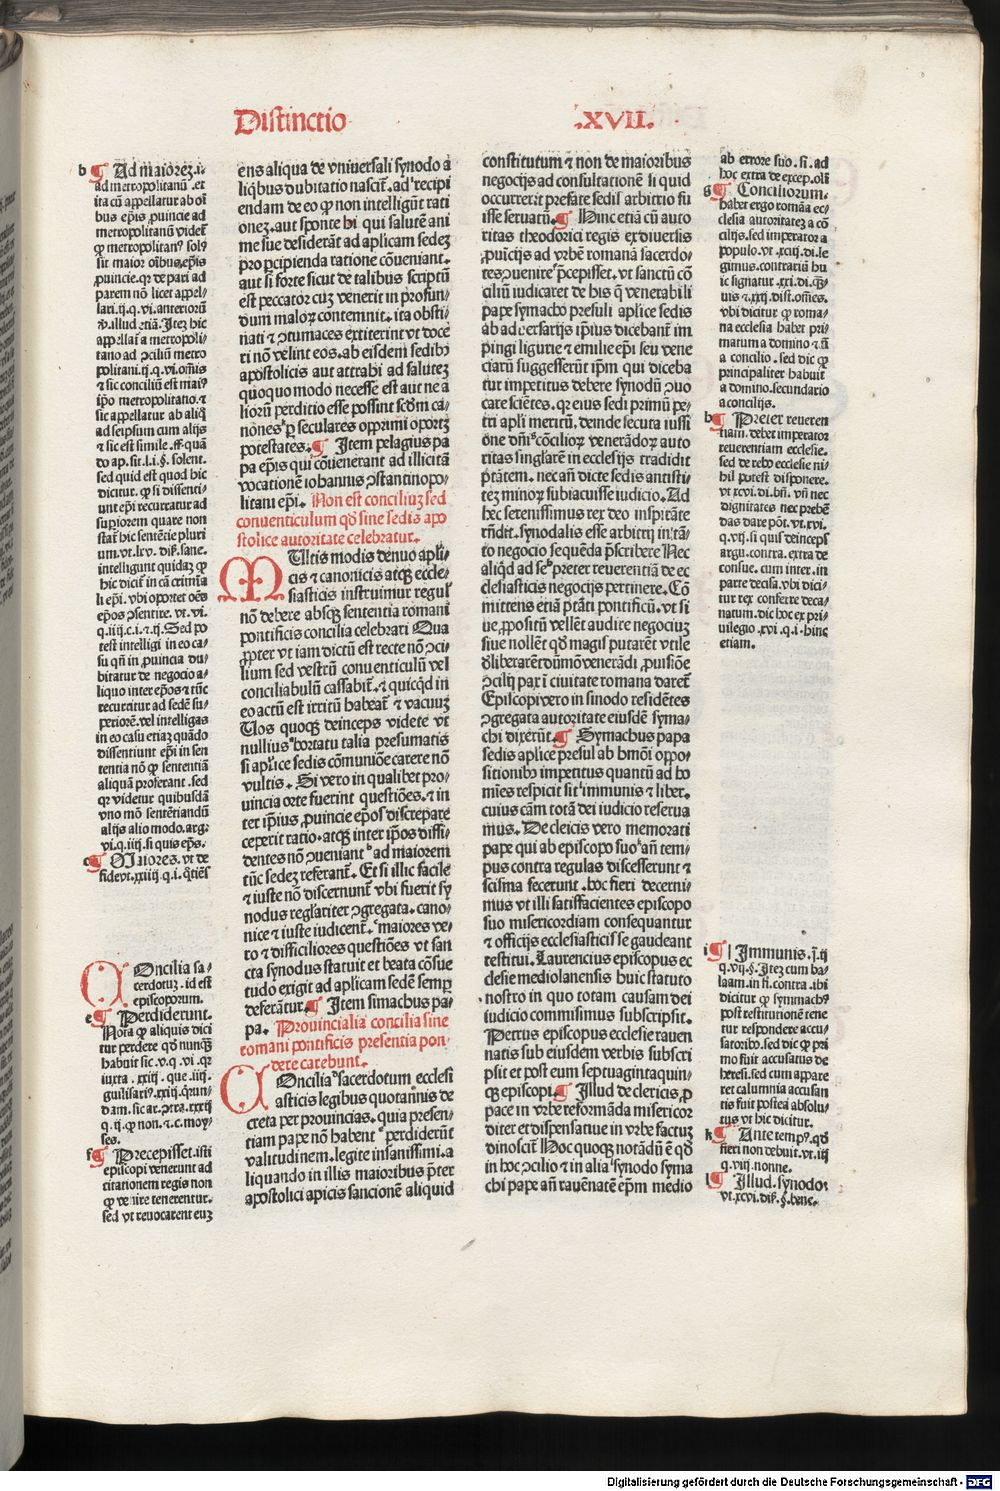 Distinctio .XVII.
b ¶ Ad maiorez.i.
ad metropolitanū .et
ita cū appellatur ab oī
bus ep̄is ꝓuincie ad
metropolitanū videt̄
ꝙ metropolitanꝰ solꝰ
sit maior oībus.ep̄is
ꝓuincie.qr de pari ad
parem nō licet appel⸗
lari.ij.q.vi.anteriorū
tano ad ↄciliū metro
politani.ij.q.vi.om̄is
⁊ sic conciliū est maiꝰ
ip̄o metropolitano.⁊
sic appellatur ab aliq̄
ad seipsum cum alijs
⁊ sic est simile .ff.quā
do ap.sit.l.i.§. solent.
sed quid est quod hic
dicitur. ꝙ si dissenti⸗
unt ep̄i recurratur ad
supiorem quare non
stat̄ hic sentētie pluri
um.vt.lxv. dist̄.sane.
intelligunt quidaz ꝙ
hic dicit̄ in cā crīmīa
li ep̄i. vbi oportet oēs
ep̄os ↄsentire. vt. vi.
q.iiij.c.i.⁊.ij. Sed po
test intelligi in eo ca⸗
su qn̄ in ꝓuincia du⸗
bitatur de negocio a⸗
liquo inter ep̄os ⁊ tūc
recurratur ad sedē su⸗
periorē.vel intelligas
in eo casu etiaz quādo
dissentiunt ep̄i in sen
tentia nō ꝙ sententiā
aliquā proferant .sed
qr videtur quibusdā
vno mō sentētiandū
alijs alio modo.arg.
vi.q.iiij.si quis ep̄s.
c ¶ Maiores. vt de
fide vt.xxiiij q.i. q̄tiēs
COncilia sa⸗
cerdotuz .id est
episcoporum.
e ¶ Perdiderunt.
Nota ꝙ aliquis dici
tur perdere qd̄ nunqꝫ
habuit sic .v.q .vi .qr
iuxta .xxiij . que .iiij.
dam.sic ar.ↄtra.xxxij
q. ij. ꝙ non. ⁊.c.moy⸗
ses.
f ¶ Precepisset.isti
episcopi venerunt ad
citationem regis non
ꝙ ve nire tenerentur.
sed vt reuocarent euz
ens aliqua de vniuersali synodo a
liq̄bus dubitatio nascit̄. ad recipi
endam de eo ꝙ non intelligūt rati
onez.aut sponte hi qui salutē ani
me sue desiderāt ad aplicam sedez
pro ꝑcipienda ratione cōueniant.
aut si forte sicut de talibus scriptū
est peccator cuz venerit in profun⸗
dum maloꝝ contemnit. ita obsti⸗
nati ⁊ ↄtumaces extiterint vt doce
ri nō velint eos.ab eisdem sedibꝫ
apostolicis aut attrabi ad salutez
quoquo modo necesse est aut ne a
liorū perditio esse possint scd̄m ca⸗
nōnes ꝑ seculares opprimi oportꝫ
potestates. ¶ Item pelagius pa
pa ep̄is qui cōuenerant ad illicitā
vocationē iohannis ↄstantinopo⸗
litani ep̄i. Non est conciliuz sed
conuenticulum qd̄ sine sedis apo
stolice autoritate celebratur.
MUltis modis denuo apli⸗
cis ⁊ canonicis atqꝫ eccle⸗
siasticis instruimur regul̄
nō debere absqꝫ sententia romani
pontificis concilia celebrari Qua
ꝓpter vt iam dictū est recte nō ↄci⸗
lium sed vestrū conuenticulū vel
conciliabulū cassabit̄.⁊ quicqd̄ in
eo actū est irritū habeat̄ ⁊ vacuuz
Uos quoqꝫ deinceps videte vt
nullius hortatu talia presumatis
si aplice sedis cōmuniōe carere nō
vultis. Si vero in qualibet pro⸗
uincia orte fuerint questiōes.⁊ in
ter ip̄ius ꝓuincie ep̄os discrepare
ceperit ratio.atqꝫ inter ip̄os dissi⸗
dentes nō ↄueniant b ad maiorem
tūc sedez referant. Et si illic facile
⁊ iuste nō discernunt̄ vbi fuerit sy
nodus reglariter ↄgregata.cano⸗
nice ⁊ iuste iudicent̄. maiores ve⸗
to ⁊ difficiliores questiōes vt san
cta synodus statuit et beata cōsue
tudo exigit ad aplicam sedē semꝑ
deferātur. ¶ Item simachus pa⸗
pa. Prouincialia concilia sine
romani pontificis presentia pon⸗
dere carebunt.
COncilia sacerdotum ecclesi
asticis legibus quotannis de
creta per prouincias. quia presen⸗
tiam pape nō habent perdiderūt
valitudinem.legite insanissimi.a
liquando in illis maioribus p̄ter
apostolici apicis sancionē aliquid
constitutum ⁊ non de maioribus
negocijs ad consultationē li quid
occurrerit prefate sedil̄ arbitrio fu
isse seruatū. ¶ Hinc etiā cū auto
ritas theodorici regis ex diuersis
ꝓuīcijs ad vrbē romanā sacerdo⸗
tes ↄuenire p̄cepisset. vt sanctū cō
ciliū iudicaret de his q̄ venerabili
pape symacho presuli aplice sedis
ab aduersarijs ip̄ius dicebant̄ im
pingi ligurie ⁊ emilie ep̄i seu vene
ciarū suggesserūt ip̄m qui diceba
tur impetitus debere synodū ↄuo
care sciētes. qr eius sedi primū pe⸗
tri apl̄i meritū. deinde secuta iussi
one dn̄i cōcilioꝝ venerādoꝝ auto
ritas singlarē in ecclesijs tradidit
ptātem. nec an̄ dicte sedis antisti⸗
tez minoꝝ subiacuisse iudicio. Ad
hec serenissimus rex deo inspirāte
rn̄dit. synodalis esse arbitrij in tā⸗
to negocio sequēda p̄scribere Nec
aliqd̄ ad se preter reuerentiā de ec
clesiasticis negocijs pertinere. Cō
mittens etiā ptāti pontificū. vt si
ue ꝓpositū vellēt audire negociuz
siue nollēt qd̄ magis putarēt vtile
Episcopi vero in sinodo residētes
ↄgregata autoritate eiusdē syma⸗
chi dixerūt. ¶ Symachus papa
sedis aplice presul ab hm̄oi oppo⸗
sitionibꝫ impetitus quantū ad ho
mīes respicit sit immunis ⁊ liber.
cuius cām totā dei iudicio reserua
mus. De cleicis vero memorati
pape qui ab episcopo suo an̄ tem⸗
pus contra regulas discesserunt ⁊
scisma fecerunt .hoc fieri decerni⸗
mus vt illi satisfacientes episcopo
suo misericordiam consequantur
⁊ officijs ecclesiasticis se gaudeant
restitui. Laurencius episcopus ec
clesie mediolanensis huic statuto
nostro in quo totam causam dei
iudicio commisimus subscripsit.
Petrus episcopus ecclesie rauen
natis sub eiusdem verbis subscri
psit et post eum septuagintaquin⸗
qꝫ episcopi. ¶ Illud de clericis ꝓ
pace in vrbe reformāda misericor
diter et dispensatiue in vrbe factuz
dinoscit̄ Hoc quoqꝫ notādū ē qd̄
in hoc ↄcilio ⁊ in alia synodo syma
chi pape an̄ rauēnatē ep̄m medio
ab errore suo. sī. ad
hoc extra de excep.olī
g ¶ Conciliorum.
habet ergo romāa ec⸗
clesia autoritatez a cō
cilijs.sed imperator a
populo. vt .xciij.di.le
gimus.contrariū hu
ic signatur .xxi.di.qꝫ⸗
uis ⁊.xxij.dist̄.om̄es.
vbi dicitur ꝙ roma⸗
na ecclesia habet pri⸗
matum a domino ⁊ nō
a concilio . sed dic ꝙ
principaliter habuit
a domino.secundario
a concilijs.
h ¶ Preter reueren
tiam. debet imperator
reuerentiam ecclesie.
sed de rebꝫ ecclesie ni⸗
hil potest disponere.
vt xcvi.di.bn̄. vn̄ nec
dignitates nec prebē
das dare pōt. vt.xvi.
q.vij.si quis deinceps
argu.contra. extra de
consue. cum inter.in
parte decisa.vbi dici⸗
tur rex conferre deca⸗
natum .dic hoc ex pri⸗
uilegio .xvi.q.i.hinc
etiam.
i ¶ Immunis.j̄.ij
q.vij.§. Itez cum ba⸗
laam.in fi.contra.ibi
dicitur ꝙ symmachꝰ
post restitutionē tene
tur respondere accu⸗
satoribꝫ.sed dic ꝙ pri
mo fuit accusatus de
heresi.sed cum appare
ret calumnia accusan
tis fuit postea absolu⸗
tus vt hic dicitur.
k ¶ Ante tempꝰ.qd̄
fieri non debuit.vt.iij
q.viij.nonne.
l ¶ Illud.synodoꝝ
vt.xcvi.dist̄.§.bene.
Digitalisierung gefördert durch die Deutsche Forschungsgemeinschaft - DFG